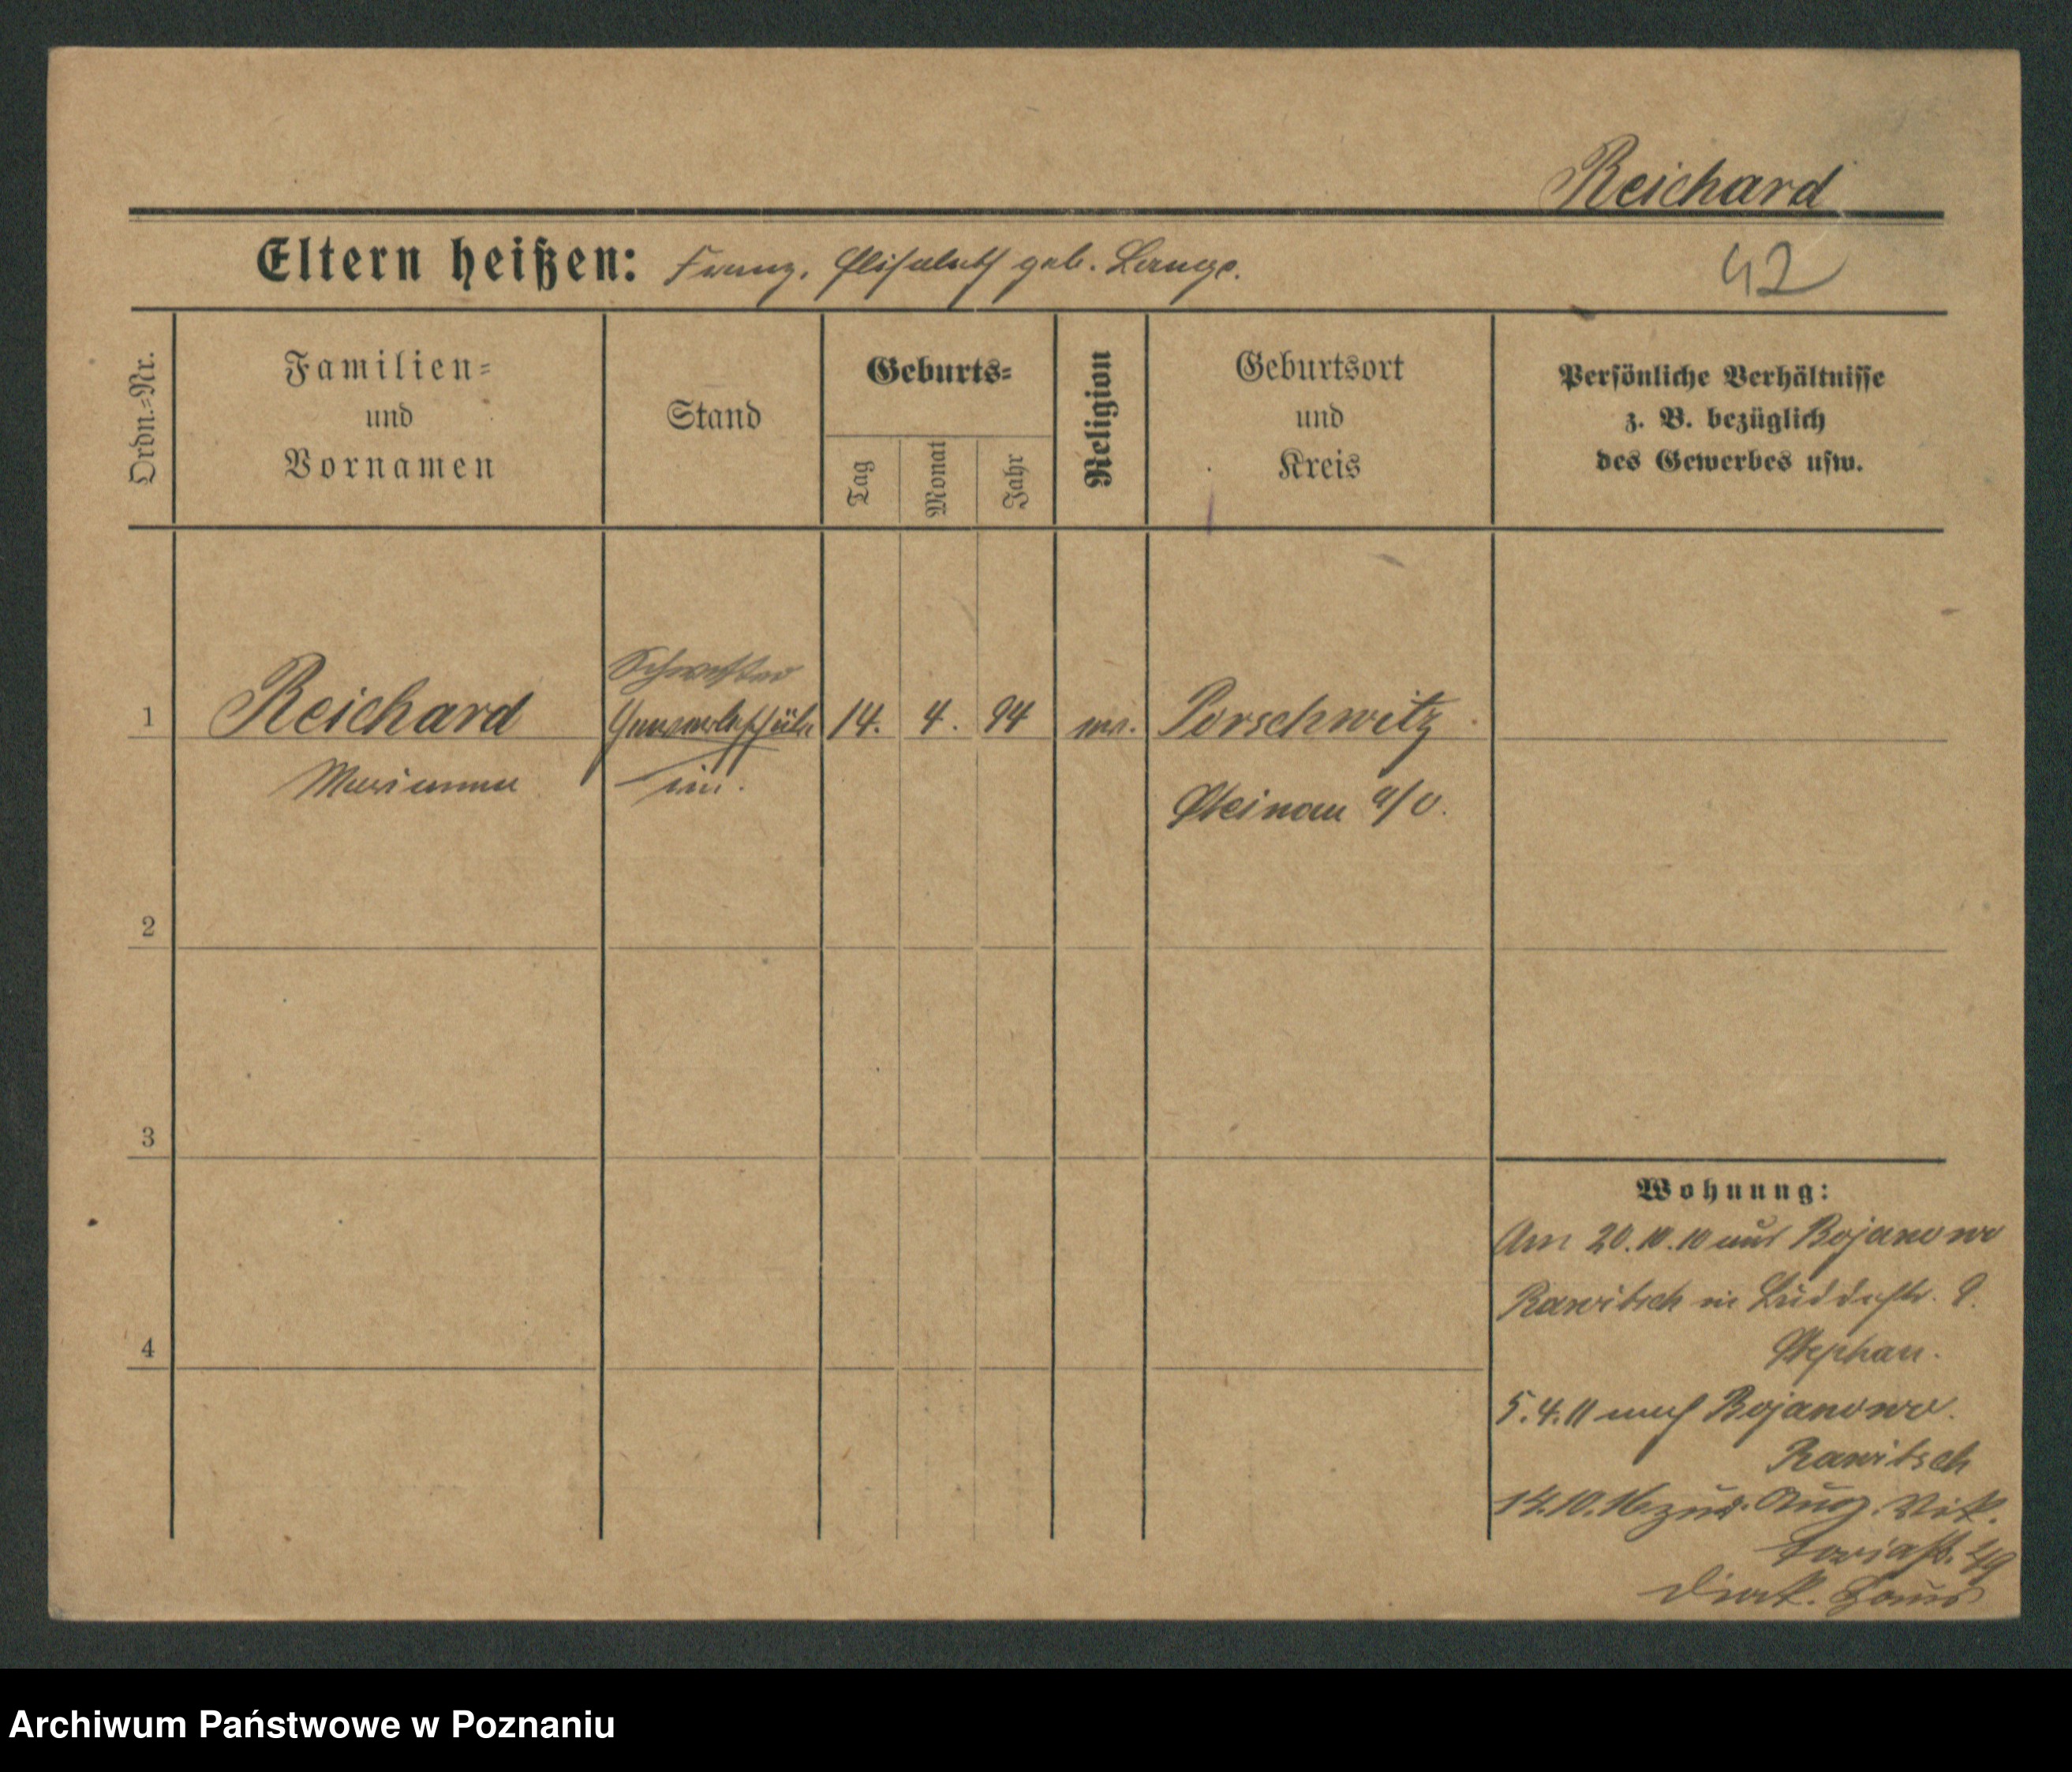 Reichard
Eltern heißen: Franz, Elisabeth geb. Lange.
42
Ordn.=Nr.
Familien=
und
Vornamen
Stand
Geburts=
Tag
Monat
Jahr
Religion
Geburtsort
und
Kreis
Persönliche Verhältnisse
z. B. bezüglich
des Gewerbes usw.
Schwester
1 Reichard Gewerbeschüle 14. 4. 94 Porschwitz
Marianna rin.
Steinau a/O.
2
3
4
Wohnung:
Am 20.10.10 aus Bojanowo
Rawitsch in 9.
Stephan.
5.4.11 nach Bojanowo.
Rawitsch
14.10.16 zur. Aug. Vik.
toriastr. 49
Haus
Archiwum Państwowe w Poznaniu